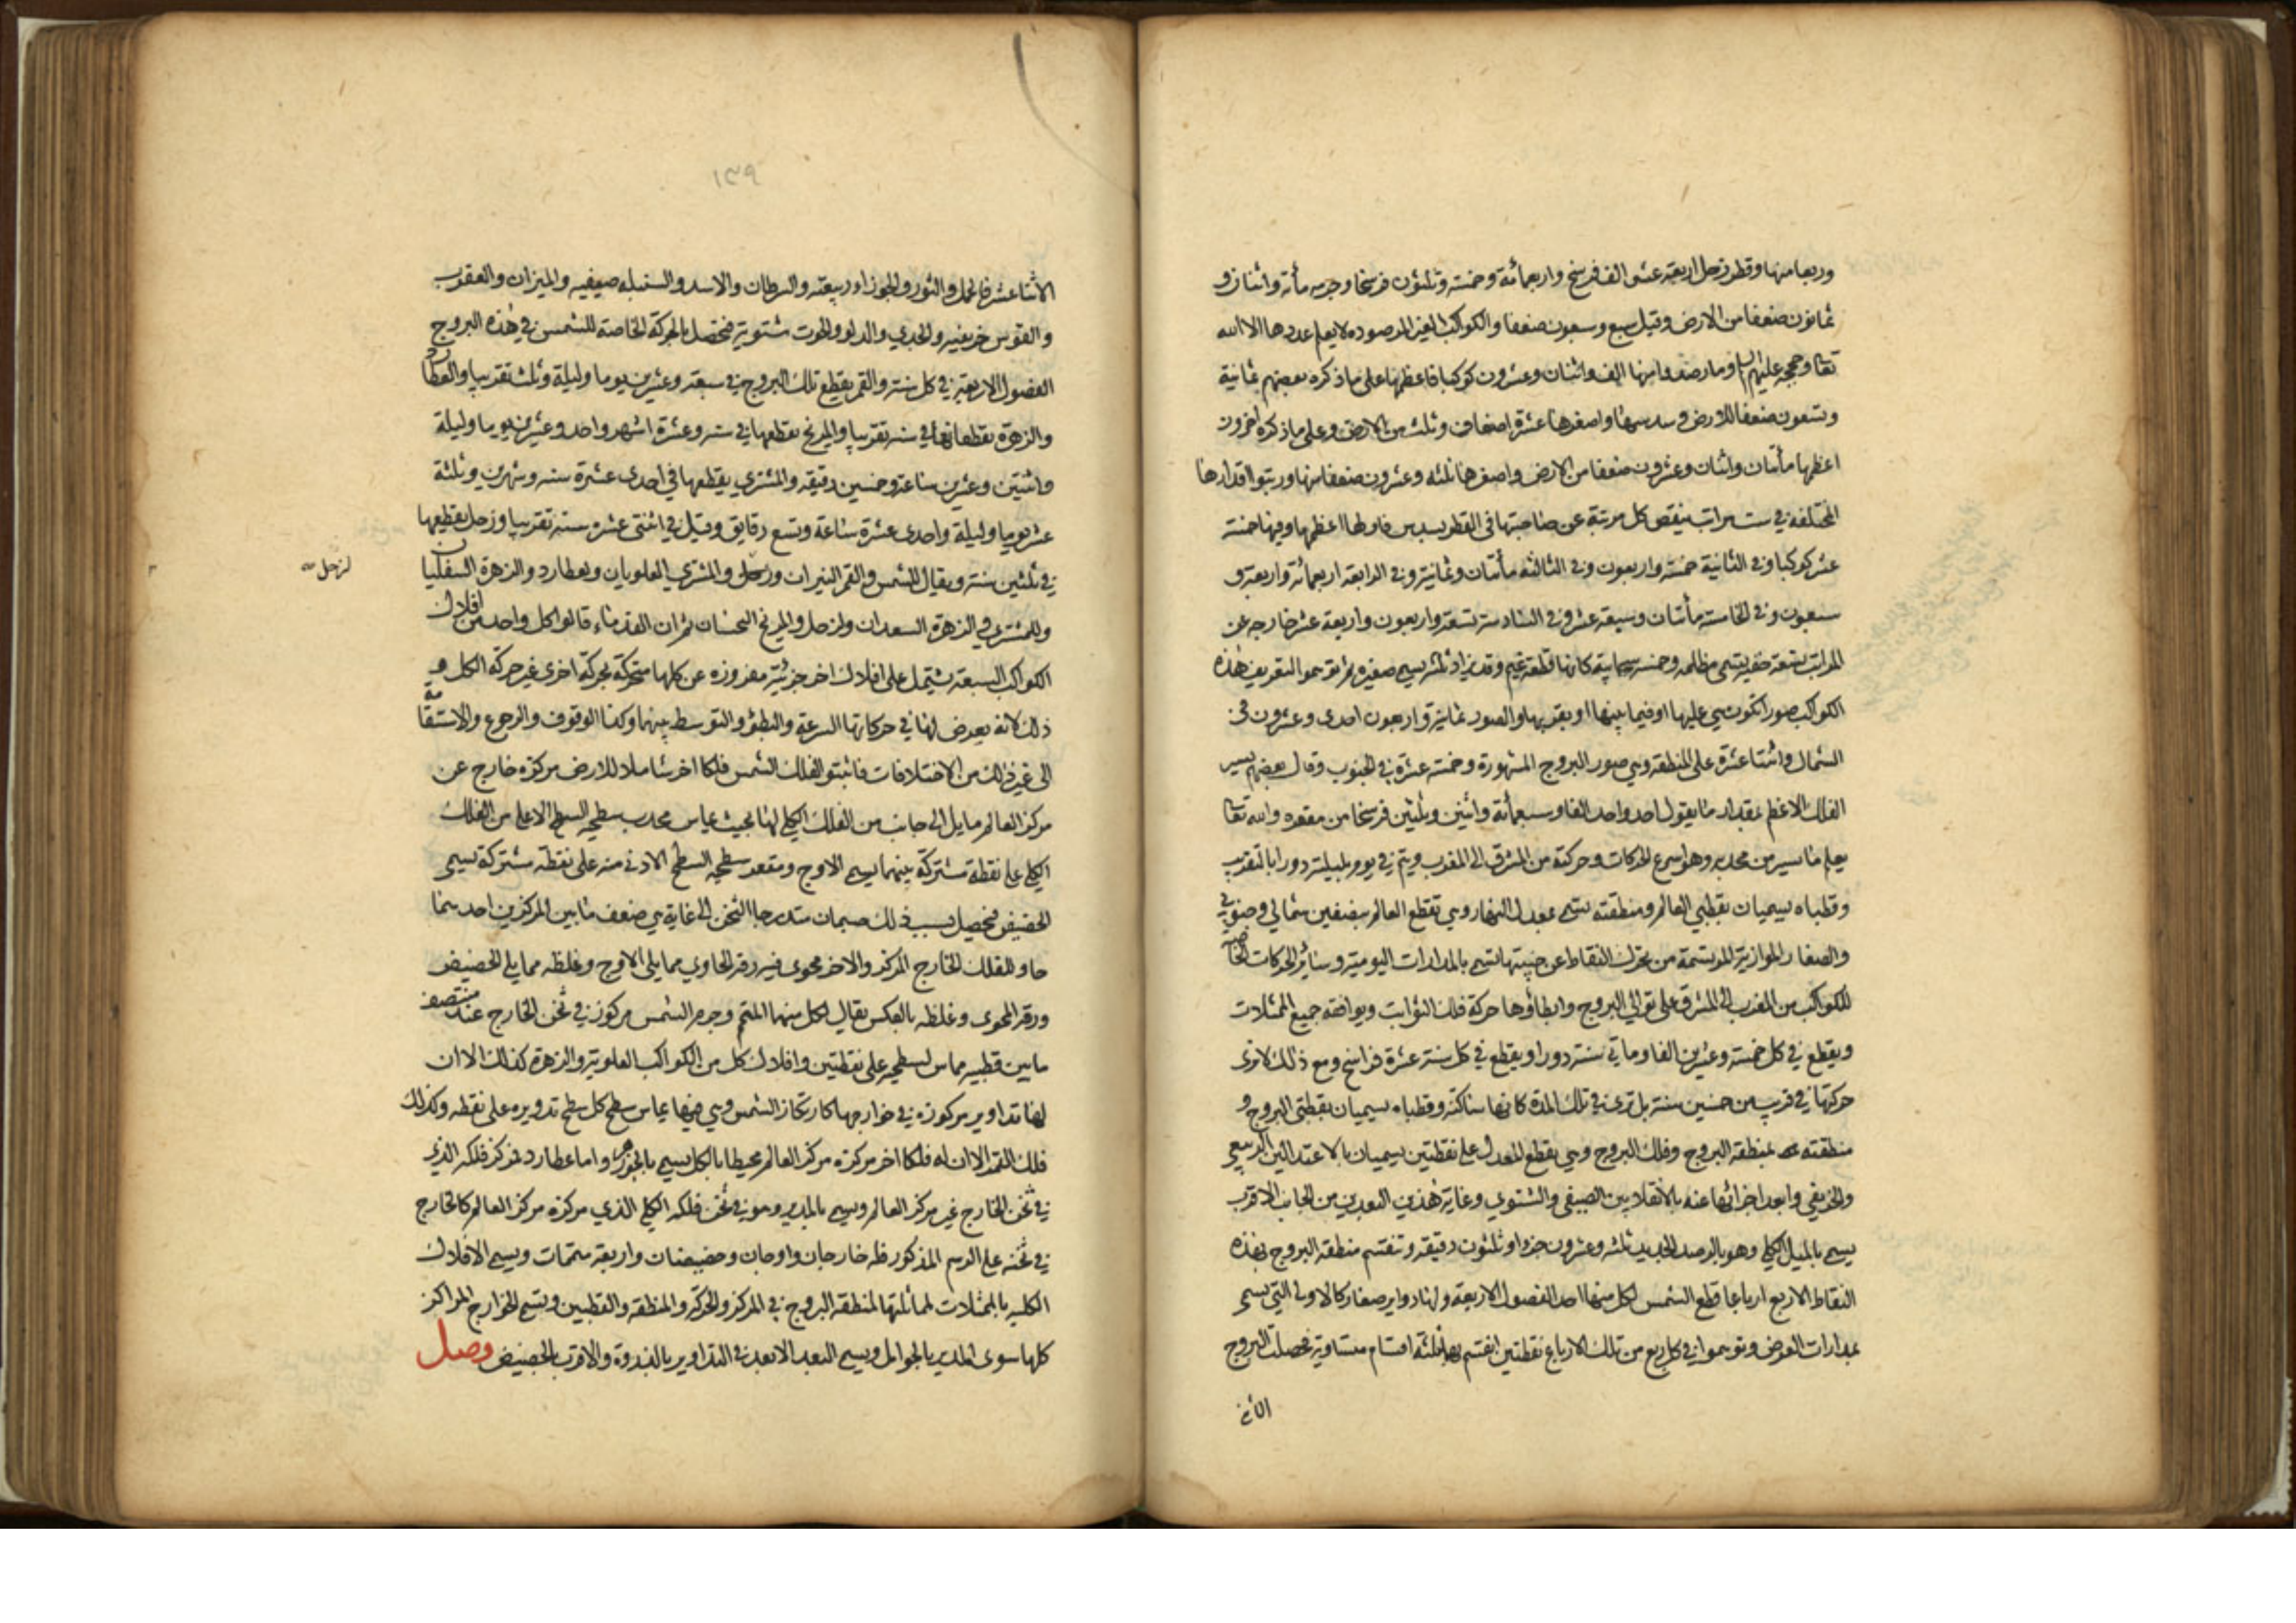 وربعا منها وقطر زحل اربعة عشر الف فرسخ واربعمائة وخمسة وثلثون فرسخا وجرمه مأة واثنان و
ثمانون ضعفا من الارض وقيل سبع وسبعون ضعفا والكواكب الغير المرصوده لا يعلم عددها الا الله
تعا وحججه عليهم السلام وما رصدوا منها الف واثنان وعشرون كوكبا فاعظمها على ما ذكره بعضهم ثمانية
وتسعون ضعفا للارض وسدسها واصغرها عشرة اضعاف وثلث من الارض وعلى ما ذكره اخرون
اعظمها مأتان واثنان وعشرون ضعفا من الارض واصغرها ثلثه وعشرون ضعفا منها ورتبوا اقدارها
المختلفه في ست مراتب ينقص كل مرتبة عن صاحبتها في القطر بسدس فاولها اعظمها وفيها خمسة
عشر كوكبا وفي الثانية خمسة واربعون وفي الثالثه مأتان وثمانية وفي الرابعة اربعمائة واربعة و
سبعون وفي الخامسة مأتان وسبعة عشر وفي السادسة تسعة واربعون واربعة عشر خارجه عن
المراتب تسعة خفية تسمى مظلمه وخمسه سحابية كانها قطعة غيم وقد يزاد ثلثه يسمى صغيره ثم توهموا لتعريف هذه
الكواكب صورا تكون هي عليها او فيما بينها او بقربها والصور ثمانية واربعون احدى وعشرون في
الشمال واثنتا عشرة على المنطقه وهي صور البروج المشهورة وخمسه عشرة في الجنوب وقال بعضهم يسير
الفلك الاعظم بمقدار ما يقول احد واحد الفا وسبعمائة واثنين وثلثين فرسخا من مقعره والله تعا
يعلم ما يسير من محدبه وهو اسرع الحركات وحركته من المشرق الى المغرب ويتم في يوم بليلته دورا بالتقريب
وقطباه يسميان بقطبي العالم ومنطقته تسمى بمعدل النهار وهي تقطع العالم بنصفين شمالي وجنوبي
والصغار الموازية المرتسمة من تحرك النقاط عن جنبيتها تسمى بالمدارات اليومية وسائر الحركات الخاصة
للكواكب من المغرب الى المشرق على توالي البروج وابطأوها حركة فلك الثوابت ويوافقه جميع الممثلات
ويقطع في كل خمسة وعشرين الفا ومأتي سنة دورا ويقطع في كل سنة عشرة فراسخ ومع ذلك لا ترى
حركتها في قريب من خمسين سنة بل ترى في تلك المدة كانها ساكنة وقطباه يسميان بقطبتي البروج و
منطقته بمنطقة البروج وفلك البروج وهي يقطع المعدل على نقطتين يسميان بالاعتدالين الربيعي
والخريفي وابعد اجزائها عنه بالانقلابين الصيفي والشتوي وغاية هذين البعدين من الجانب الاقرب
يسمى بالميل الكلي وهو بالرصد الجديد ثلثه وعشرون جزءا وثلثون دقيقه وتنقسم منطقة البروج بهذه
النقاط الاربع ارباعا قطع الشمس لكل منها احد الفصول الاربعة ولها دواير صغار كالاولى التي تسمى
بمدارات العرض وتوهموا في كل ربع من تلك الارباع نقطتين انقسم بهما ثلثة اقسام متساوية فحصلت البروج
الاثنا
١٣٩
الاثنا عشر فالحمل والثور والجوزاء ربيعيه والسرطان والاسد والسنبله صيفيه والميزان والعقرب
والقوس خريفيه والجدي والدلو والحوت شتوية فتحصل بالحركة الخاصة للشمس في هذه البروج
الفصول الاربعة في كل سنة والقمر يقطع تلك البروج في سبعة وعشرين يوما وليلة وثلث تقريبا والعطارد
والزهرة يقطعانها في سنه تقريبا والمريخ يقطعها في سنه وعشرة اشهر واحد وعشرين يوما وليلة
واثنتين وعشرين ساعة وخمسين دقيقه والمشتري يقطعها في احدى عشرة سنه وشهرين وثلثة
عشر يوما وليلة واحدى عشرة ساعة وتسع دقايق وقيل في اثنتى عشره سنه تقريبا وزحل يقطعها
في ثلثين سنة ويقال للشمس والقمر النيران وزحل والمشتري العلويان ولعطارد والزهرة السفليان
لزحل
وللمشتري والزهرة السعدان ولزحل والمريخ النحسان ثم ان القدماء قالوا كل واحد من افلاك
الكواكب السبعة يشتمل على افلاك اخر جزئية مفروزه عن كلها متحركة بحركة اخرى غير حركة الكل و
ذلك لانه يعرض لها في حركاتها السرعة والبطؤ والتوسط بينهما وكذا الوقوف والرجوع والاستقامة
الى غير ذلك من الاختلافات فاثبتوا لفلك الشمس فلكا اخر شاملا للارض مركزه خارج عن
مركز العالم مايل الى جانب من الفلك الكلي لها بحيث يماس محدب سطحيه السطح الاعلى من الفلك
الكلي على نقطة مشتركة بينهما يسمى الاوج ومقعر سطحيه السطح الادنى منه على نقطة مشتركة يسمى
الحضيض فيحصل بسبب ذلك جسمان متدرجا الثخن الى غاية هي ضعف ما بين المركزين احدهما
حاو للفلك الخارج المركز والاخر محوى فيه رقة الحاوي مما يلي الاوج وغلظه مما يلي الحضيض
ورقة المحوى وغلظه بالعكس يقال لكل منهما المتمم وجرم الشمس مركوز في ثخن الخارج عند منتصف
ما بين قطبيه مماس لسطحيه على نقطتين وافلاك كل من الكواكب العلوية والزهرة كذلك الا ان
لها تداوير مركوزه في خوارجها كارتكاز الشمس وهي فيها يماس سطح كل سطح تدويره على نقطه وكذلك
فلك القمر الا ان له فلكا اخر مركزه مركز العالم محيطا بالكل يسمى بالجوزهر واما عطارد فمركز فلكه الذي
في ثخن الخارج غير مركز العالم ويسمى بالمدير وهو في ثخن فلكه الكلي الذي مركزه مركز العالم كالخارج
في ثخنه على الرسم المذكور فله خارجان واوجان وحضيضان واربعة متممات ويسمى الافلاك
الكلية بالممثلات لمماثلتها لمنطقه البروج في المركز والحركة والمنطقه والقطبين وتسمى الخوارج المراكز
كلها سوى المدير بالحوامل ويسمى البعد الابعد في التداوير بالذروة والاقرب بالحضيض وصل